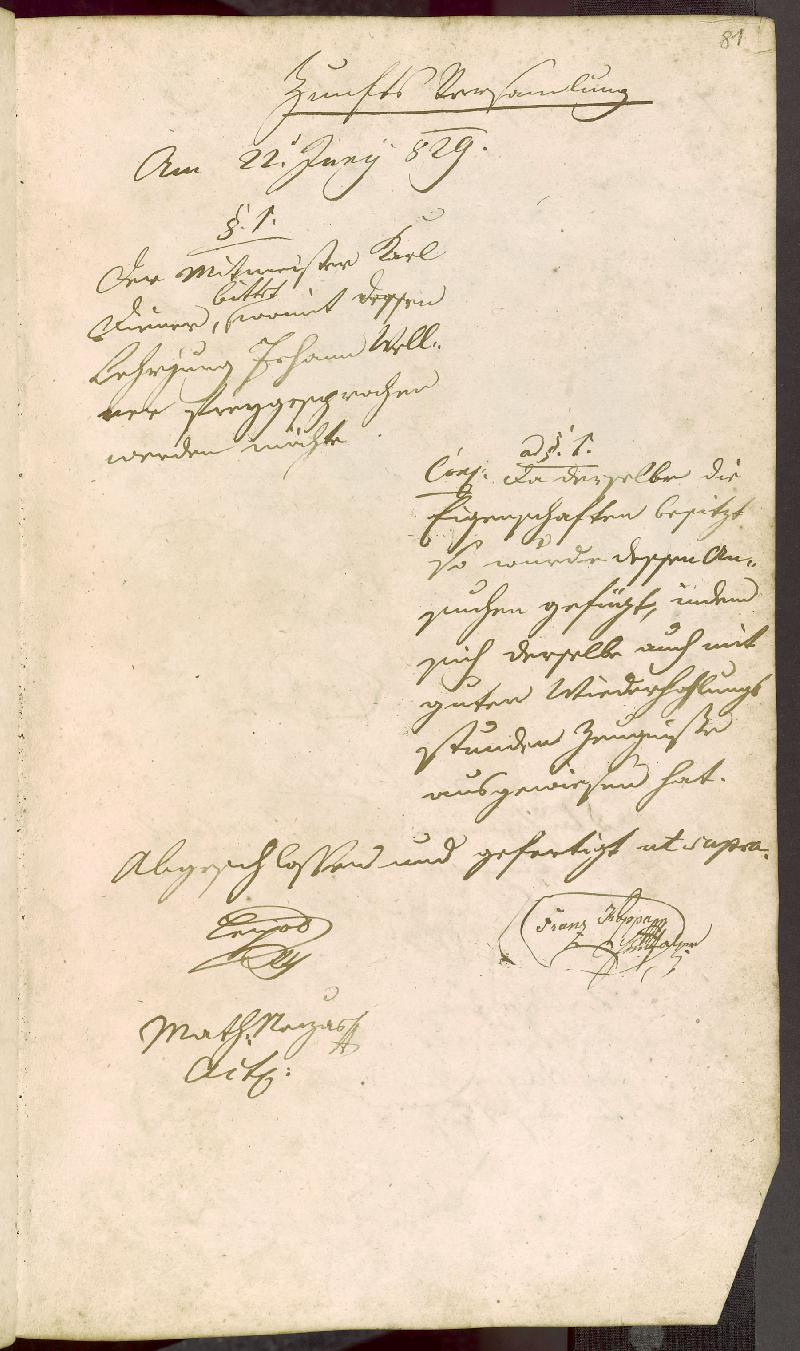 81
Zunfts Versamlung
Am 22t Juny 829.
§. 1.
Der Mitmeister Karl
bittet
Diener, womit dessen
Lehrjung Johann Woll-
ner freygesprochen
werden möchte
ad §. 1.
Conf: Da derselbe die
Eigenschaften besitzt
so wurde dessen An-
suchen gefügt, indem
sich derselbe auch mit
guten Wiederhohlungs
stunden Zeugniße
ausgewiesen hat.
Abgeschlossen und gefertigt ut supra.
Franz
Math:
Act: